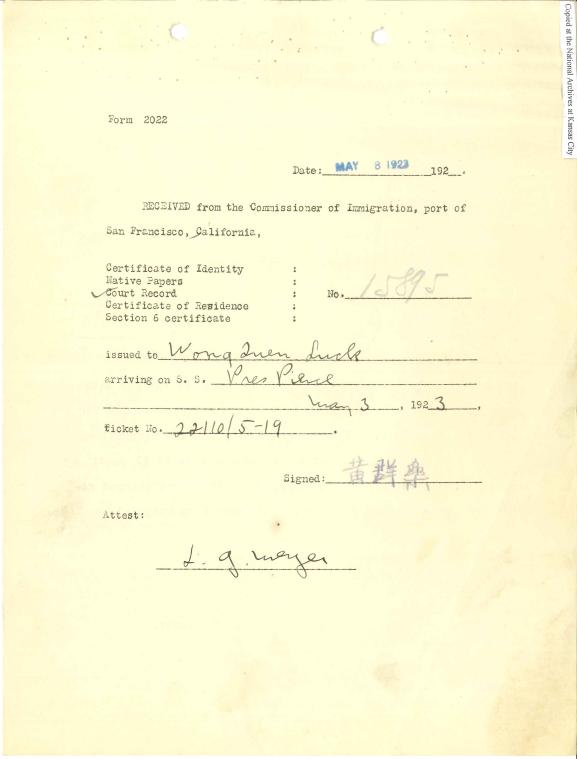 Copied at the National Archives at Kansas City
Form 2022
Date: MAY 8 1923 192 .
RECEIVED from the Commissioner of Immigration, port of
San Francisco, California,
Certificate of Identity :
Native Papers :
✓Court Record : No. 15895
Certificate of Residence :
Section 6 certificate :
issued to Wong Quen Luck
arriving on S. S. Pres Pierce
May 3 , 192 3 ,
Ticket No. 22110/5-19 .
Signed: 黄群樂
Attest:
L. G. Meyer